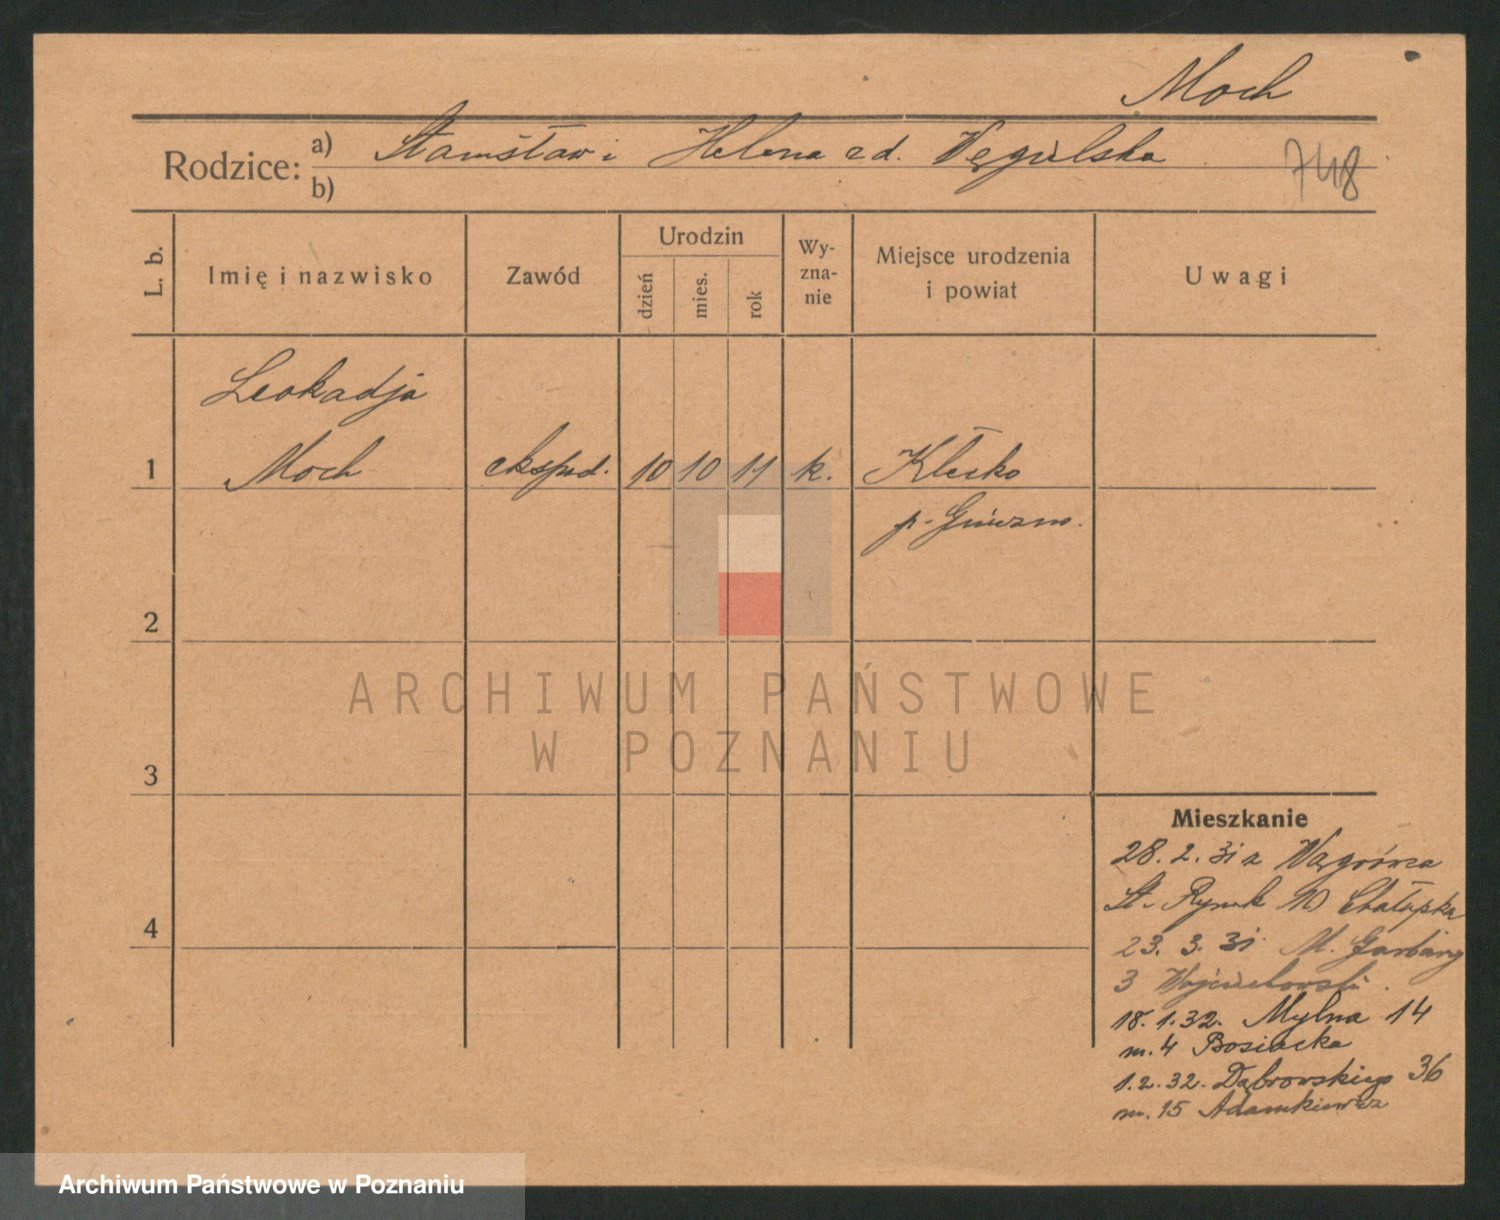 Moch
Rodzice: a) Stanisław i Helena zd. Węgielska
b)
748
L. b.
Imię i nazwisko
Zawód
Urodzin
dzień
mies.
rok
Wy-
zna-
nie
Miejsce urodzenia
i powiat
Uwagi
Leokadja
1 Moch ekspd. 10 10 11 k. Kłecko
p. Gniezno.
2
3
4
ARCHIWUM PAŃSTWOWE
W POZNANIU
Mieszkanie
28. 2. 31 z Wągrówca
St. Rynek 10 Chałupka
23. 3. 31 M. Garbary
3 Wojciechowski.
18. 1. 32. Mylna 14
m. 4 Bosiacka
1. 2. 32. Dąbrowskiego 36
m. 15 Adamkiewicz
Archiwum Państwowe w Poznaniu